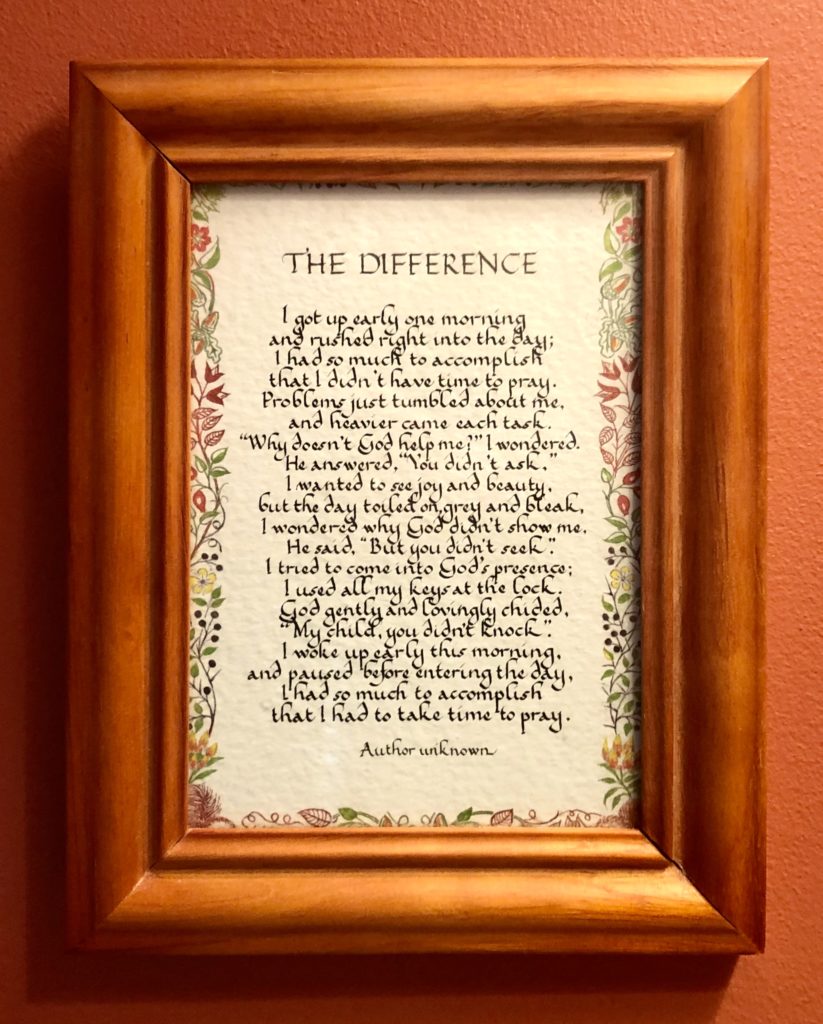 THE DIFFERENCE
I got up early one morning
and rushed right into the day;
I had so much to accomplish
that I didn't have time to pray.
Problems just tumbled about me,
and heavier came each task.
"Why doesn't God help me?" I wondered.
He answered, "You didn't ask."
I wanted to see joy and beauty,
but the day toiled on, grey and bleak,
I wondered why God didn't show me,
He said, "But you didn't seek".
I tried to come into God's presence;
I used all my keys at the lock.
God gently and lovingly chided,
"My child, you didn't knock".
I woke up early this morning,
and paused before entering the day,
I had so much to accomplish
that I had to take time to pray.
Author unknown